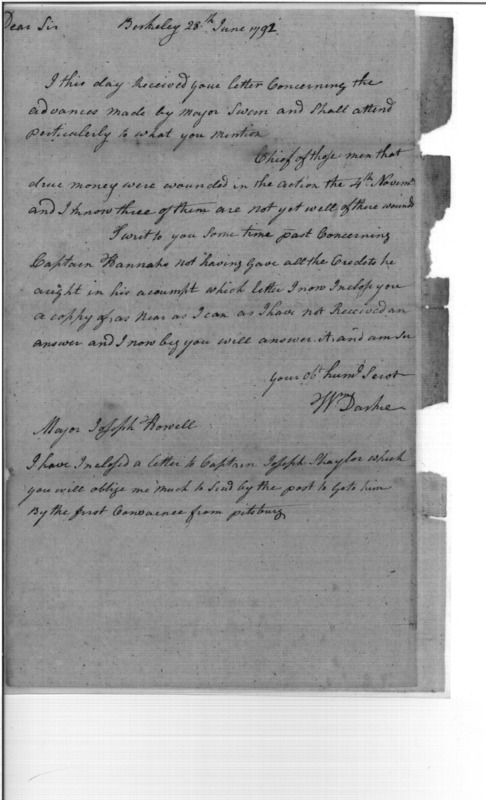 Dear Sir Berkeley 28th June 1792
I this day Received your letter Concerning the
advances made by Major Swan and Shall attend
perticulerly to what you mention
Chief of those men that
drue money were wounded in the action the 4th Novemr
and I know three of them are not yet well of there wounds
I writ to you Some time past Concerning
Captain Hannahs not having Gave all the Credits he
aught in his acoumpt which letter I now Inclose you
a coppy of, as Near as I can as I have not Received an
answer and I now beg you will answer it and am Sir
your obt humb Servt
Wm Darke
Major Joseph Howell
I have Inclosed a letter to Captain Joseph Shaylor which
you will oblige me much to Send by the post to Goto him
By the first Convaence from pitsburg